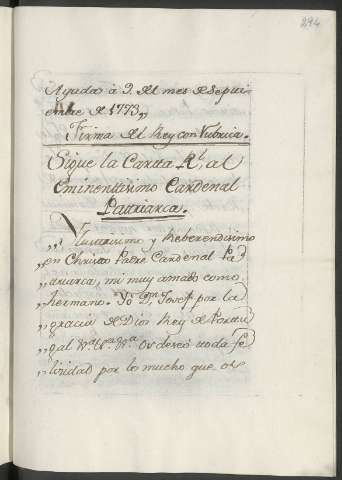 294
Ayuda à 9. del mes de Septi-
embre de 1773,,
Firma del Rey con Rubrica.
Sigue la Carta Rl. al
Eminentisimo Cardenal
Patriarca.
Ylustrisimo y Reberendisimo
,,en Christo Padre Cardenal Pa
,,triarca, mi muy amado como
,,hermano. Yo Dn. Josef por la
,,gracia de Dios Rey de Portu
,,gal &a. &a. &a. Os deseo toda fe
,,licidad por lo mucho que os